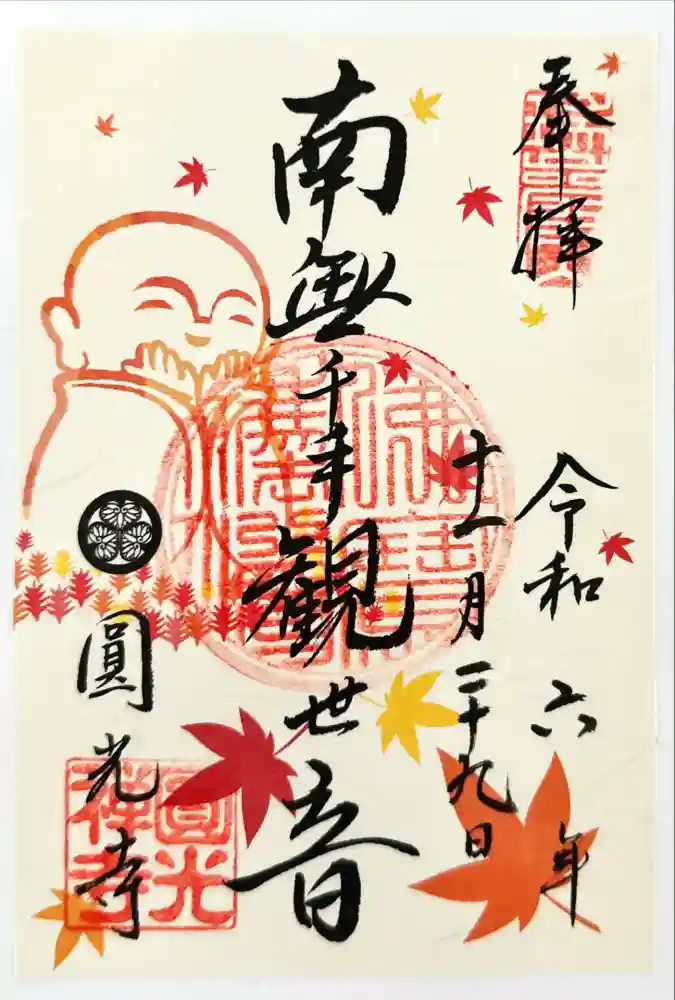 奉拝
令和六年
十一月二十九日
南無千手観世音
圓光寺
圓光禅寺
佛法僧寶